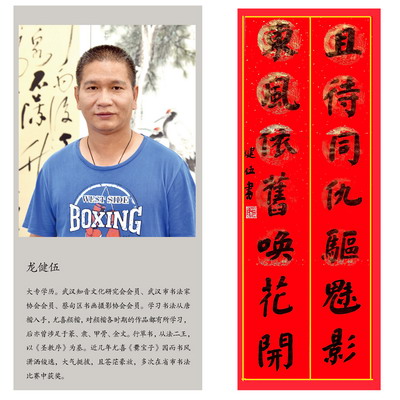 WEST SIDE
BOXING
龙健伍
大专学历。武汉知音文化研究会会员、武汉市书法家
协会会员、蔡甸区书画摄影协会会员，学习书法从唐
楷入手，尤喜颜楷，对颜楷各时期的作品都有所学习，
后亦曾涉足于篆、隶、甲骨、金文。行草书，从法二王，
以《圣教序》为基。近几年尤喜《爨宝子》因而书风
潇洒俊逸，大气挺拔，且苍茫豪放，多次在省市书法
比赛中获奖。
且待同仇驅魅影
東風依舊喚花開
健伍書